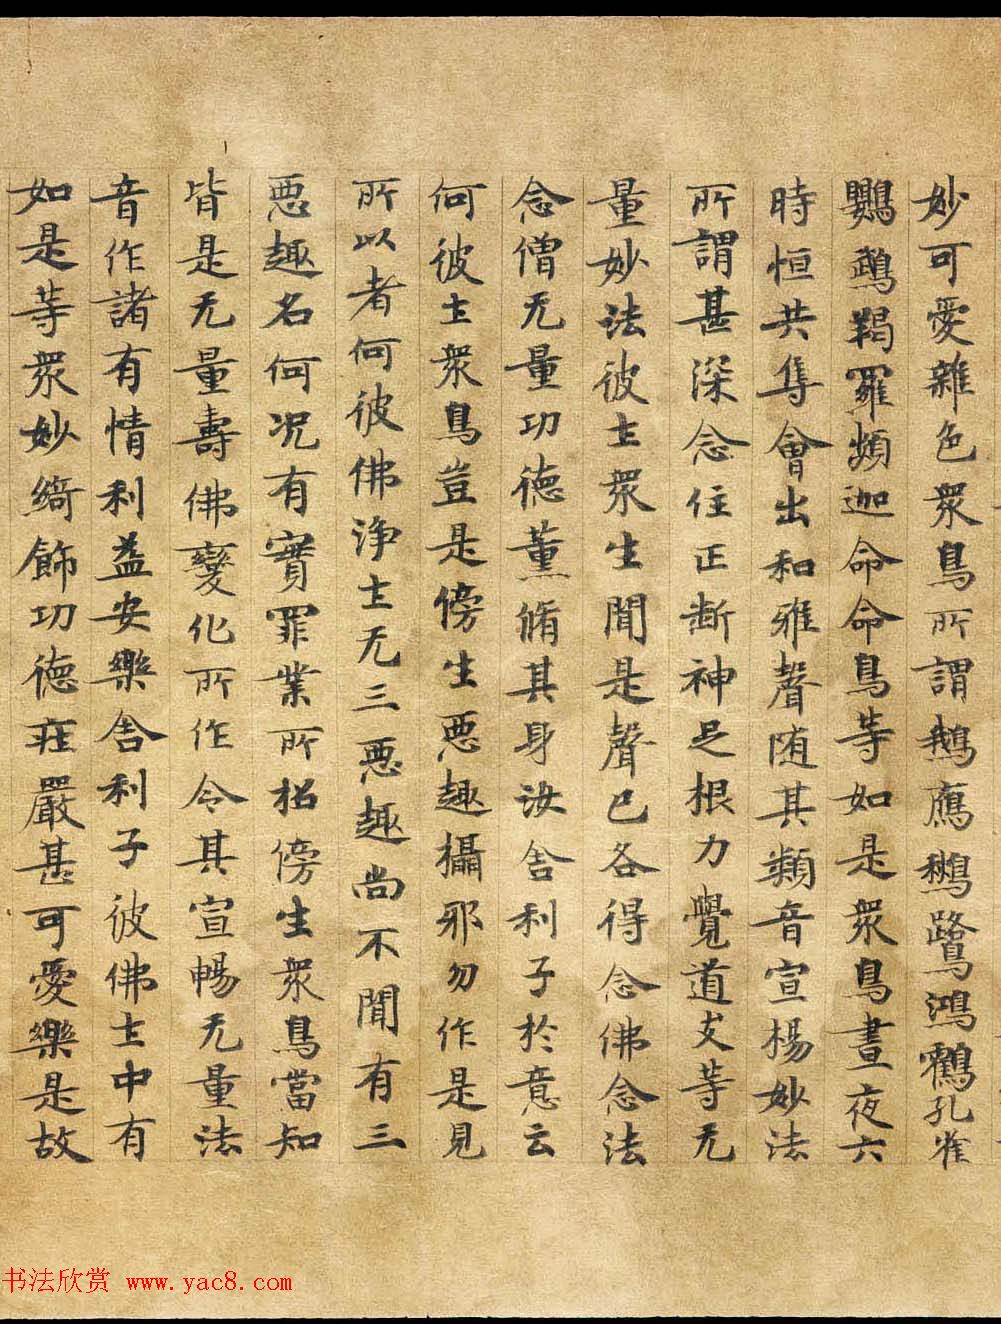 妙可愛雜色衆鳥所謂鵝鴈鶖鷺鴻鶴孔雀
鸚鵡羯羅頻迦命命鳥等如是衆鳥晝夜六
時恒共集會出和雅聲随其類音宣楊妙法
所謂甚深念住正断神足根力覺道支等无
量妙法彼土衆生聞是聲已各得念佛念法
念僧无量功德薫脩其身汝舍利子於意云
何彼土衆鳥豈是傍生惡趣攝邪勿作是見
所以者何彼佛净土无三惡趣尚不聞有三
惡趣名何况有實罪業所招傍生衆鳥當知
皆是无量壽佛變化所作令其宣暢无量法
音作諸有情利益安樂舍利子彼佛土中有
如是等衆妙綺飾功德庄嚴甚可愛樂是故
书法欣赏 www.yac8.com